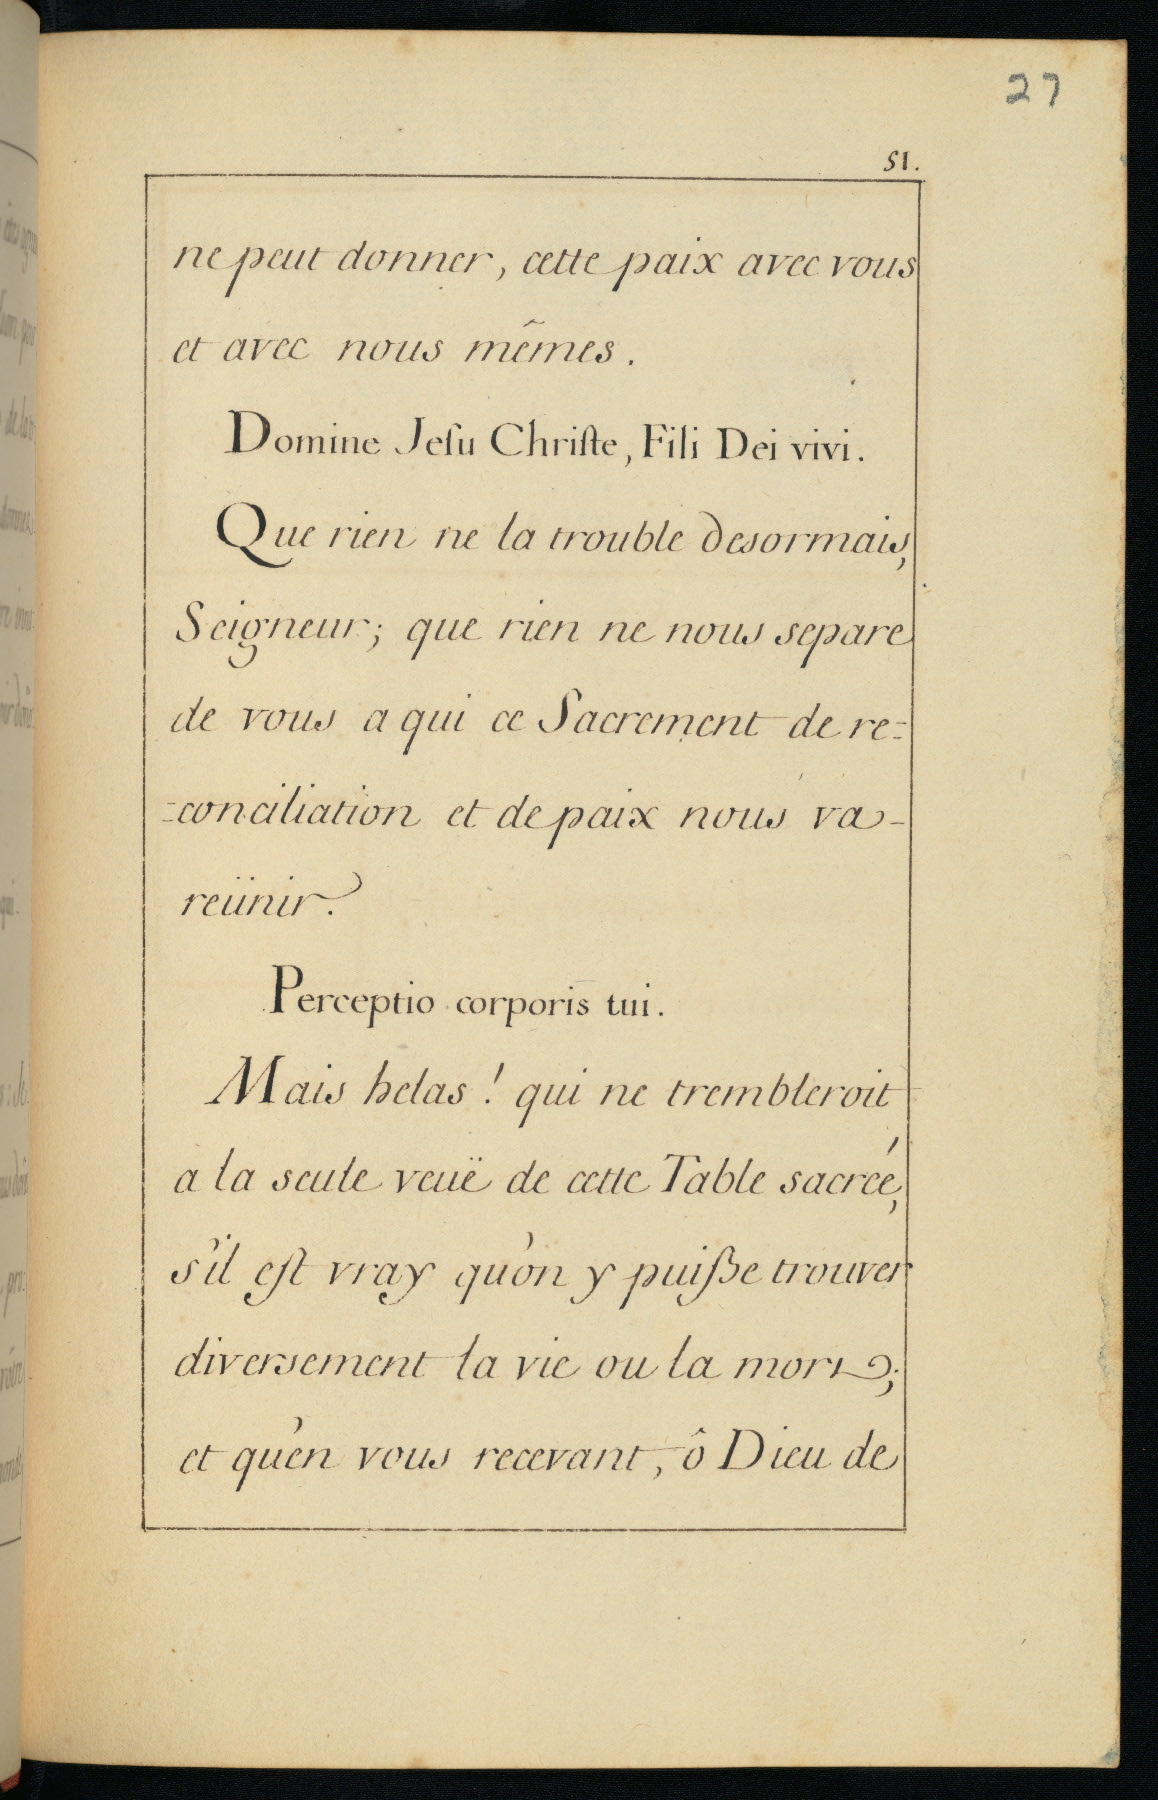 27
51.
ne peut donner, cette paix avec vous
et avec nous mêmes.
Domine Jeſu Chriſte, Fili Dei vivi.
Que rien ne la trouble desormais,
Seigneur; que rien ne nous separe
de vous a qui ce Sacrement de re=
=conciliation et de paix nous va-
reünir.
Perceptio corporis tui.
Mais helas! qui ne trembleroit
a la seule veuë de cette Table sacrée,
s'il eſt vray qu'on y puiſse trouver
diversement la vie ou la mort;
et qu'en vous recevant, ô Dieu de